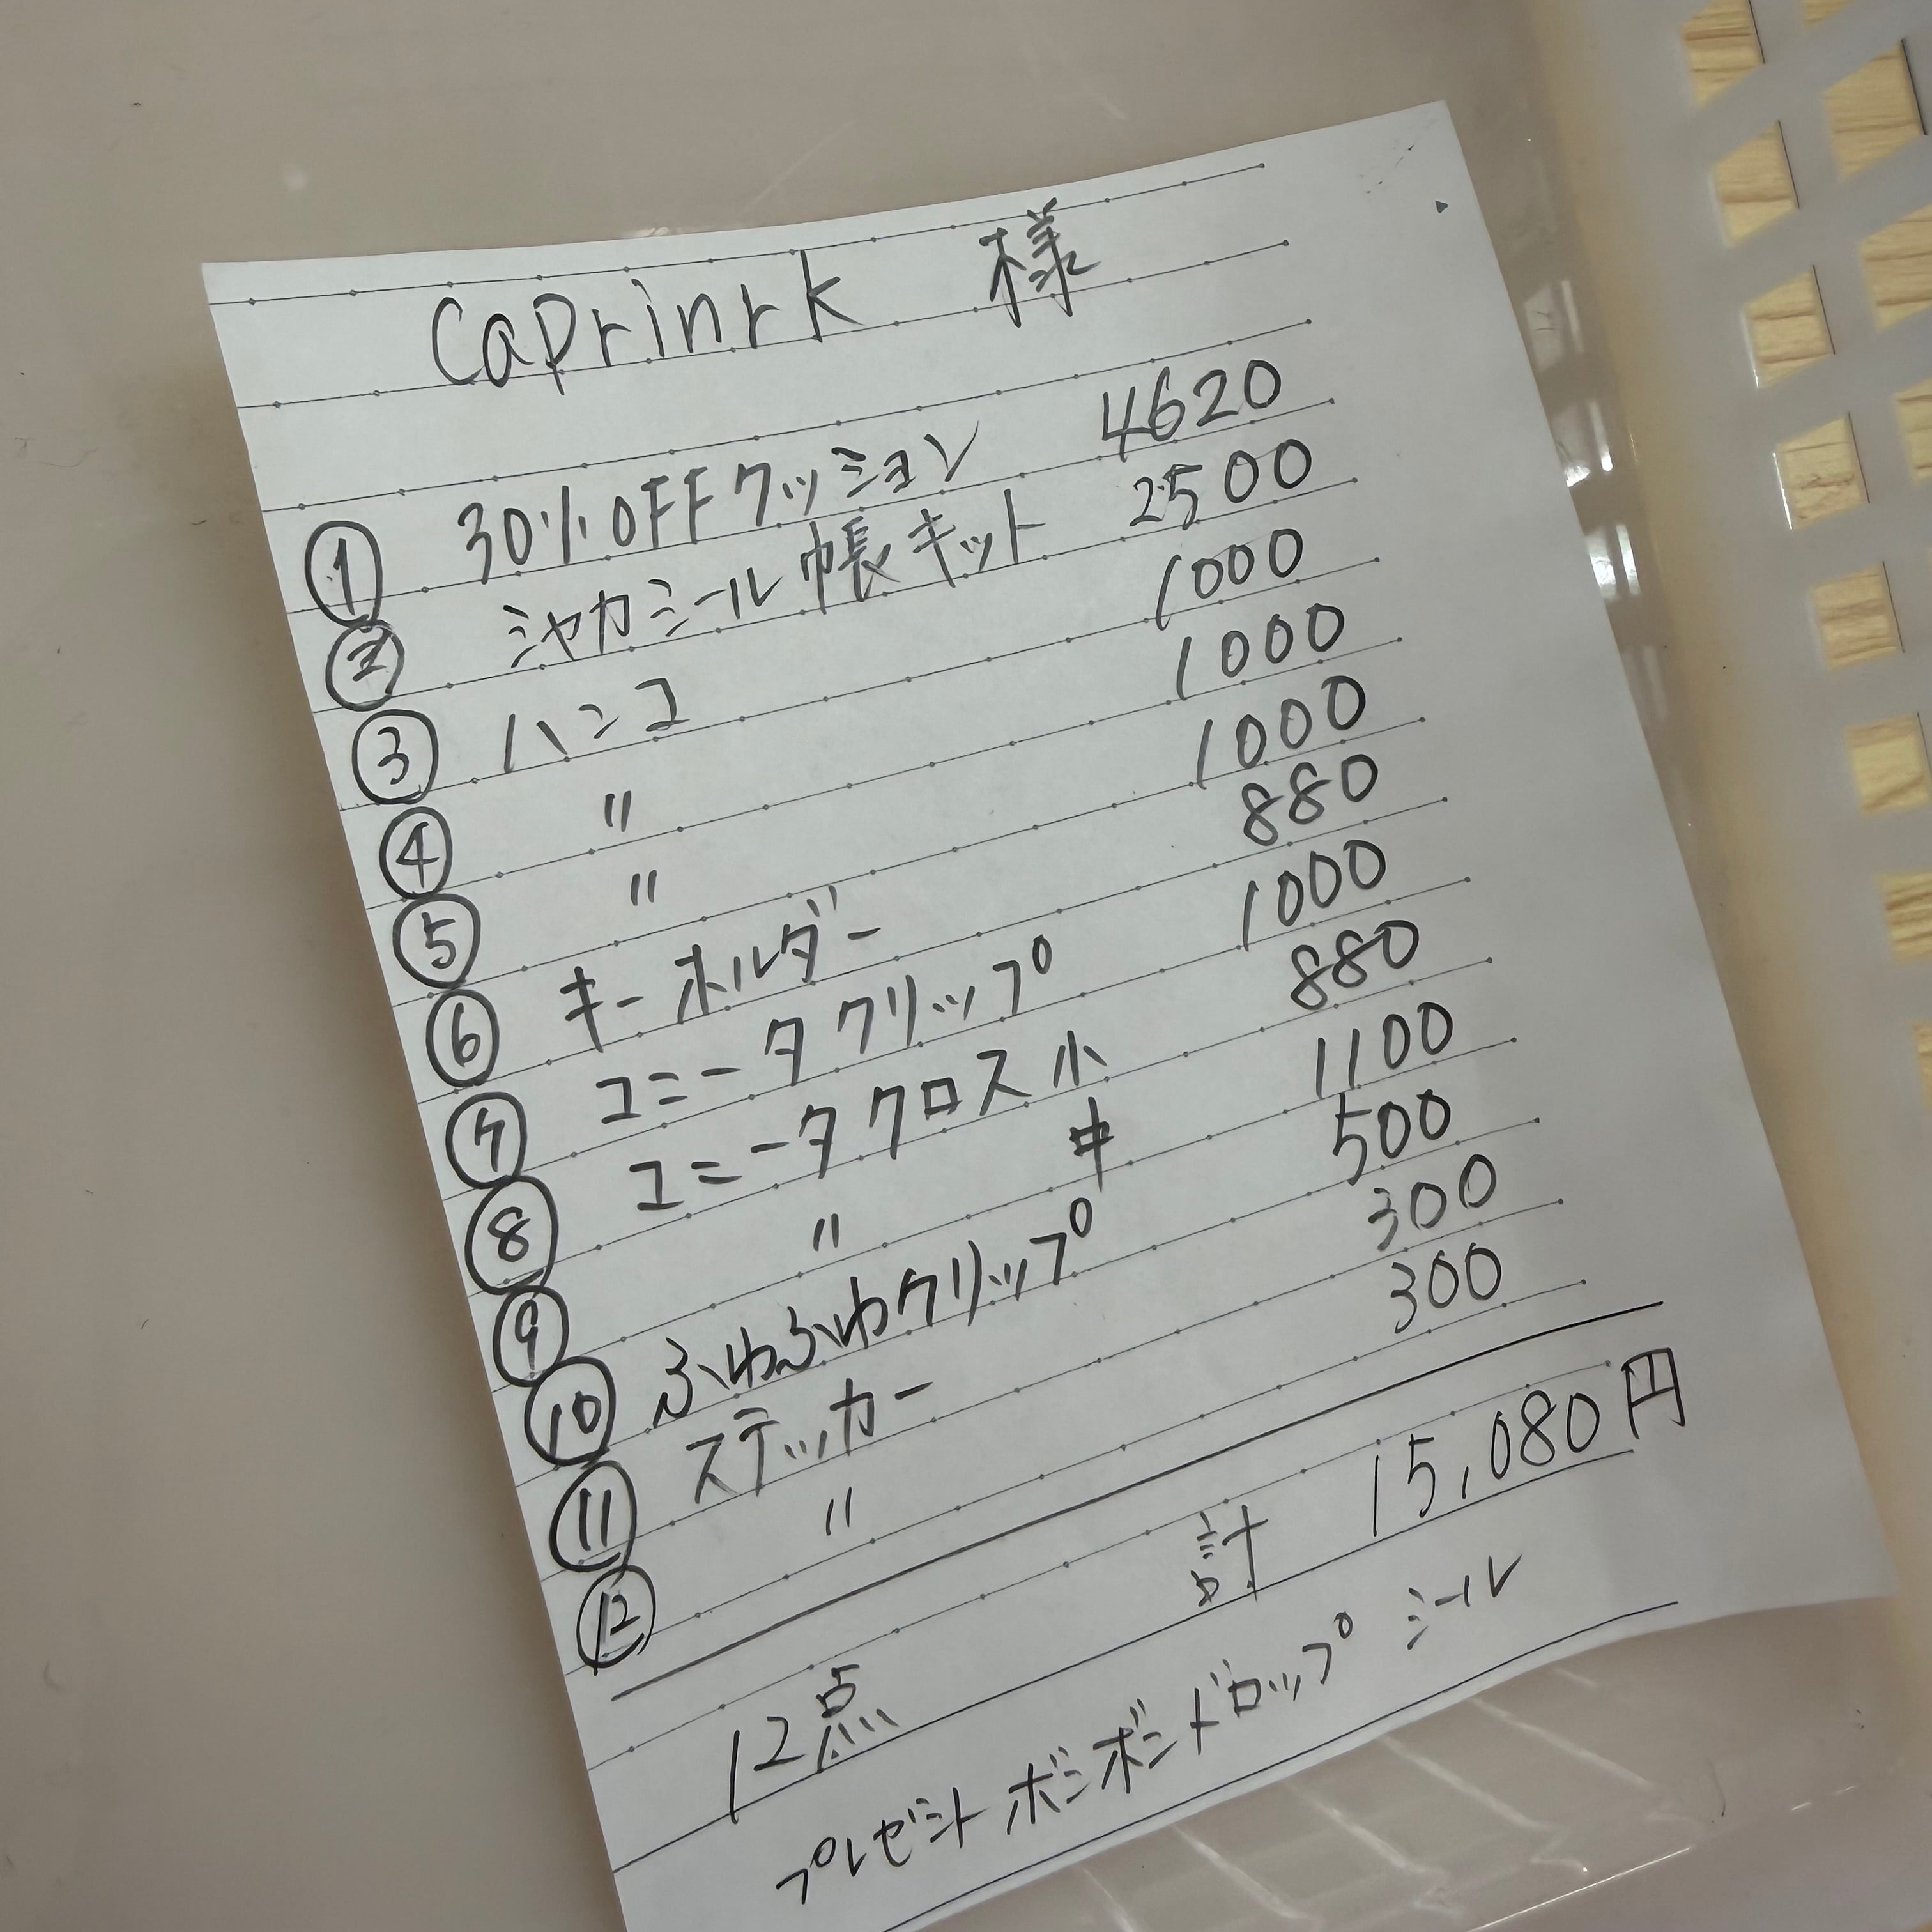 caprinrk 様
① 30%OFFクッション 4620
② シャカシール帳キット 2500
③ ハンコ 1000
④ 〃 1000
⑤ 〃 1000
⑥ キーホルダー 880
⑦ ユニータクリップ 1000
⑧ ユニータクロス小 880
⑨ 〃 中 1100
⑩ ふわふわクリップ 500
⑪ ステッカー 300
⑫ 〃 300
計 15,080円
12点
プレゼント ボンボンドロップシール